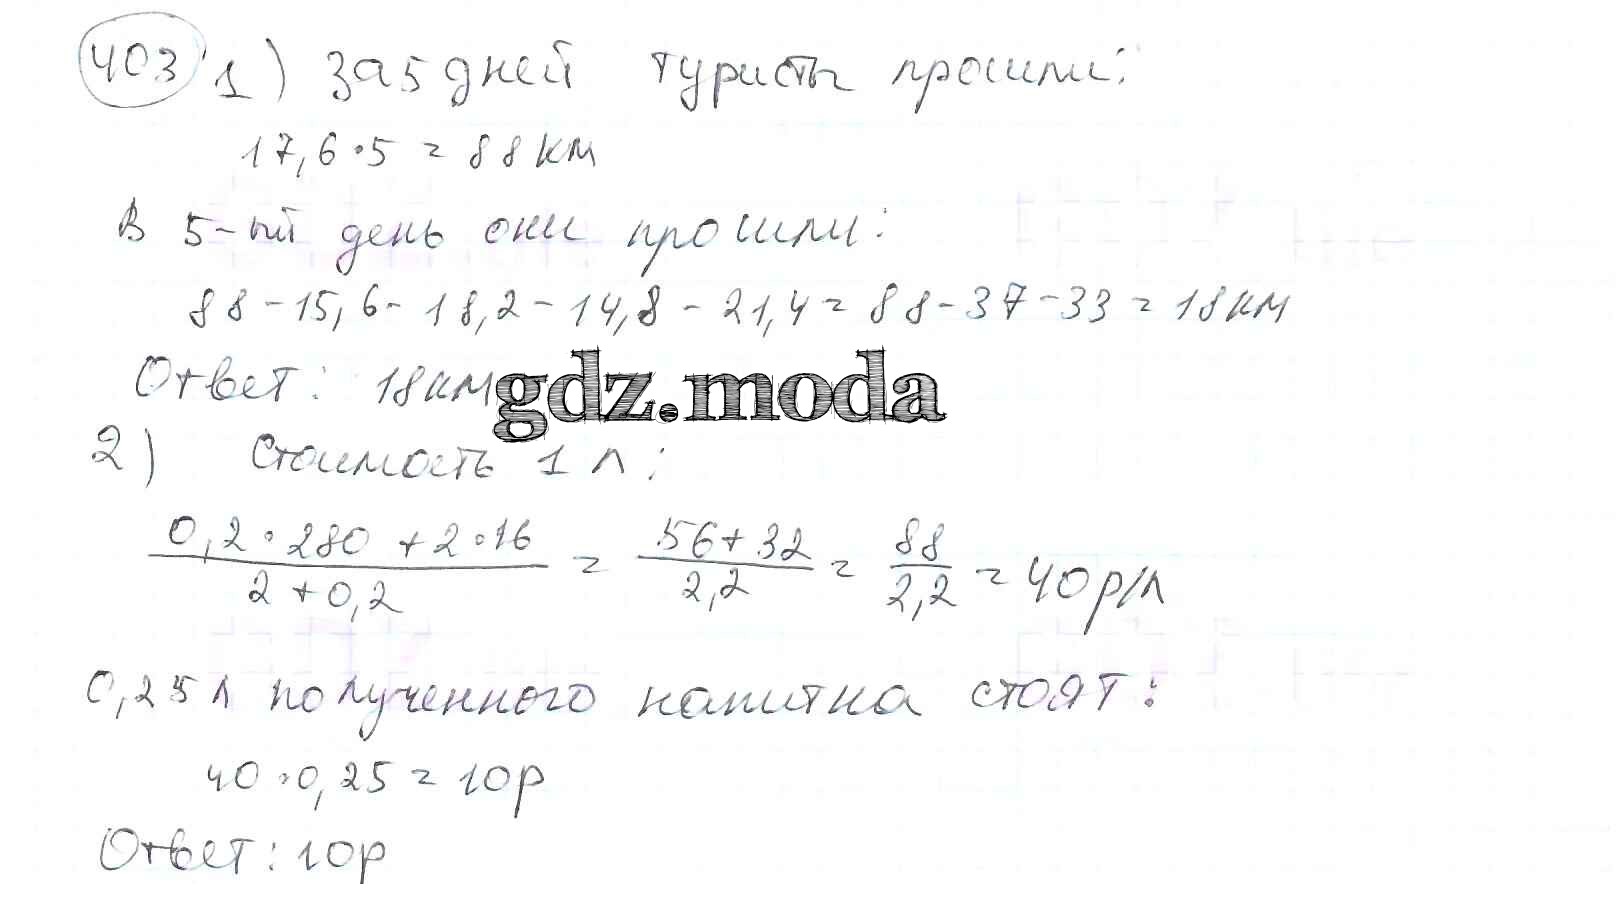 403 1) За 5 дней туристы прошли:
17,6·5 = 88км
В 5-ый день они прошли:
88-15,6-18,2-14,8-21,4=88-37-33=18км
Ответ: 18км
gdz.moda
2) Стоимость 1 л:
0,2·280+2·16 / 2+0,2 = 56+32 / 2,2 = 88 / 2,2 = 40р/л
0,25л полученного напитка стоят:
40·0,25=10р
Ответ: 10р